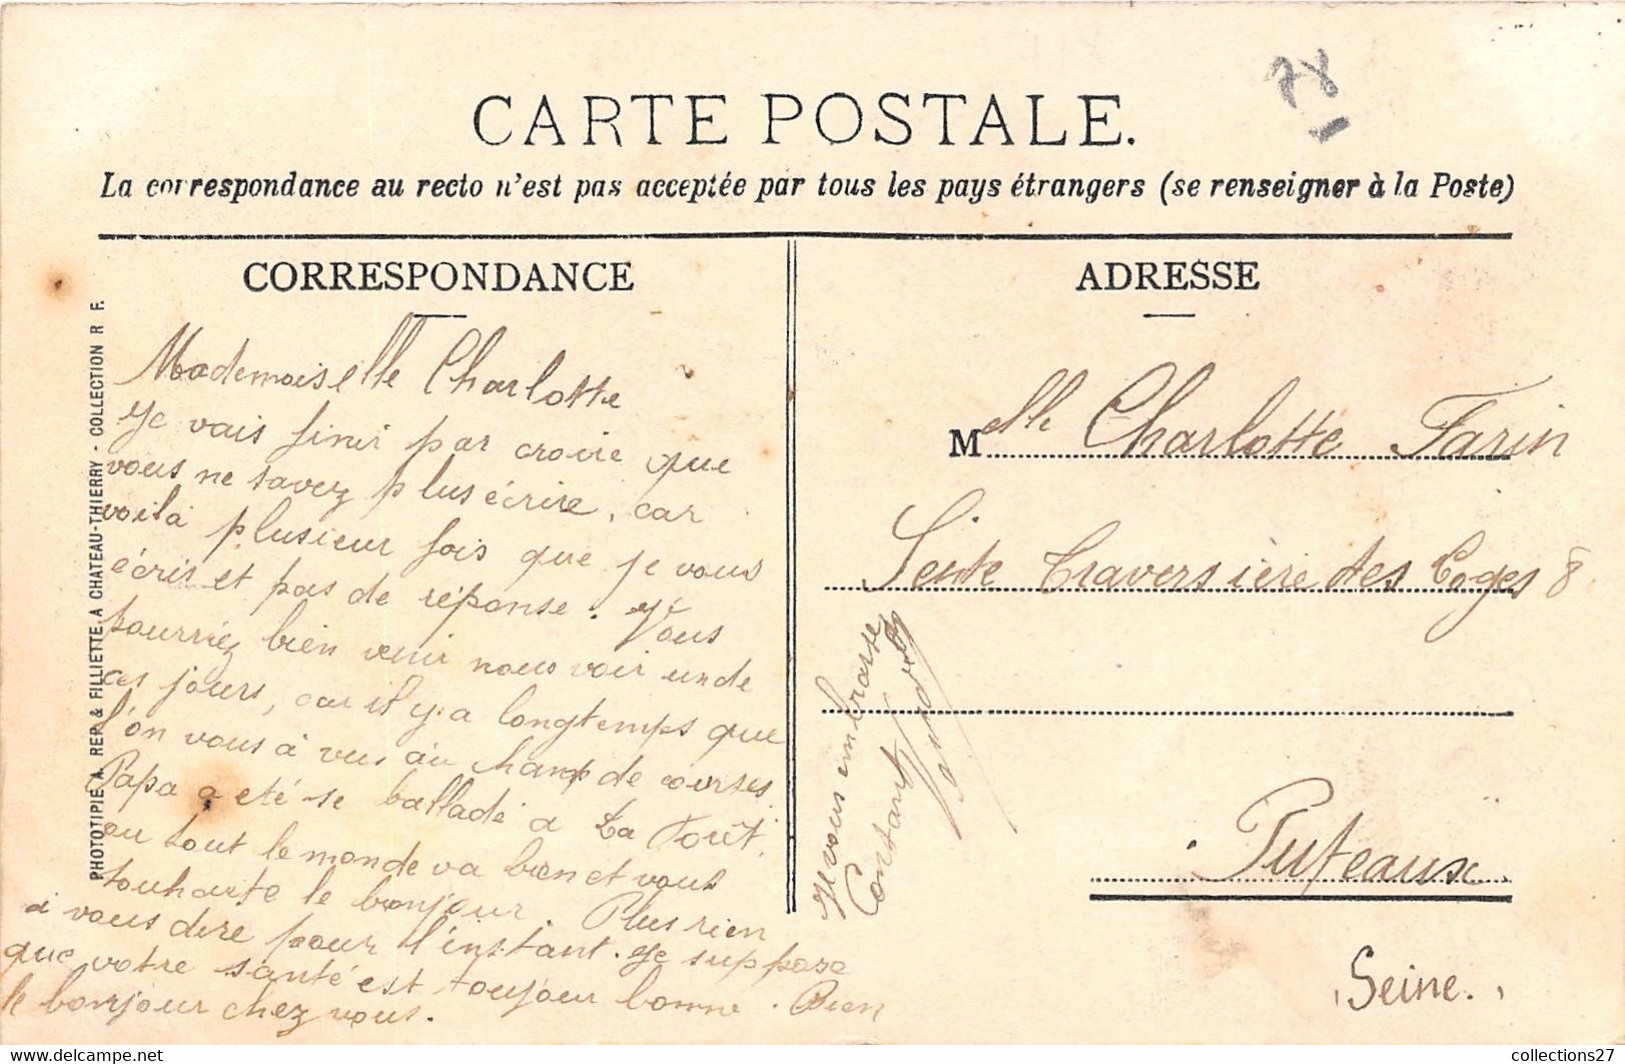 78
CARTE POSTALE.
La correspondance au recto n'est pas acceptée par tous les pays étrangers (se renseigner à la Poste)
CORRESPONDANCE
Mademoiselle Charlotte
Je vais finir par croire que
vous ne savez plus écrire, car
voila plusieur fois que je vous
écris et pas de réponse. Vous
pourriez bien venir nous voir un de
ces jours, car il y a longtemps que
l'on vous à vus au champ de courses
Papa a été se balladé a La Forêt.
ou tout le monde va bien et vous
souharte le bonjour. Plus rien
a vous dire pour l'instant. Je suppose
que votre santé est toujour bonne. Bien
le bonjour chez vous.
Je vous embrasse
Constant
PHOTOTIPIE A. REP. & FILLIETTE. A CHATEAU-THIERRY - COLLECTION R. F.
ADRESSE
Melle Charlotte Farin
Sente Traversière des Coges 8
Puteaux
Seine.
collections27